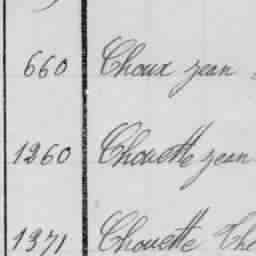 660 Choux jean
1260 Chouette jean
1371 Chouette